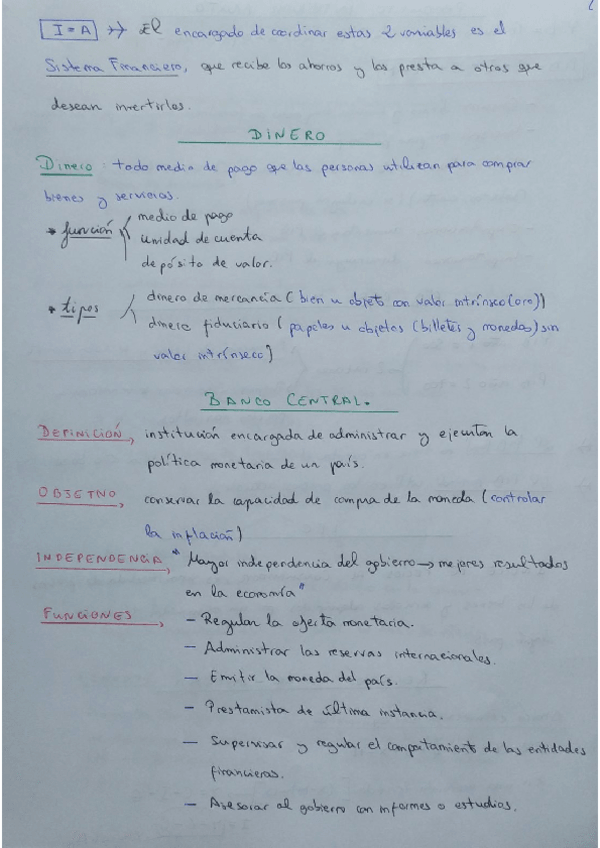 I = A →→ El encargado de coordinar estas 2 variables es el
Sistema Financiero, que recibe los ahorros y los presta a otros que
desean invertirlos.
DINERO
Dinero: todo medio de pago que las personas utilizan para comprar
bienes y servicios.
* función
medio de pago
unidad de cuenta
depósito de valor.
* tipos
dinero de mercancía (bien u objeto con valor intrínseco (oro))
dinero fiduciario (papeles u objetos (billetes y monedas) sin
valor intrínseco)
BANCO CENTRAL.
DEFINICIÓN, institución encargada de administrar y ejecutar la
política monetaria de un país.
OBJETIVO conservar la capacidad de compra de la moneda (controlar
la inflación)
INDEPENDENCIA, "Mayor independencia del gobierno → mejores resultados
en la economía"
FUNCIONES, - Regular la oferta monetaria.
- Administrar las reservas internacionales.
- Emitir la moneda del país.
- Prestamista de última instancia.
- Supervisar y regular el comportamiento de las entidades
financieras.
- Asesorar al gobierno con informes o estudios.